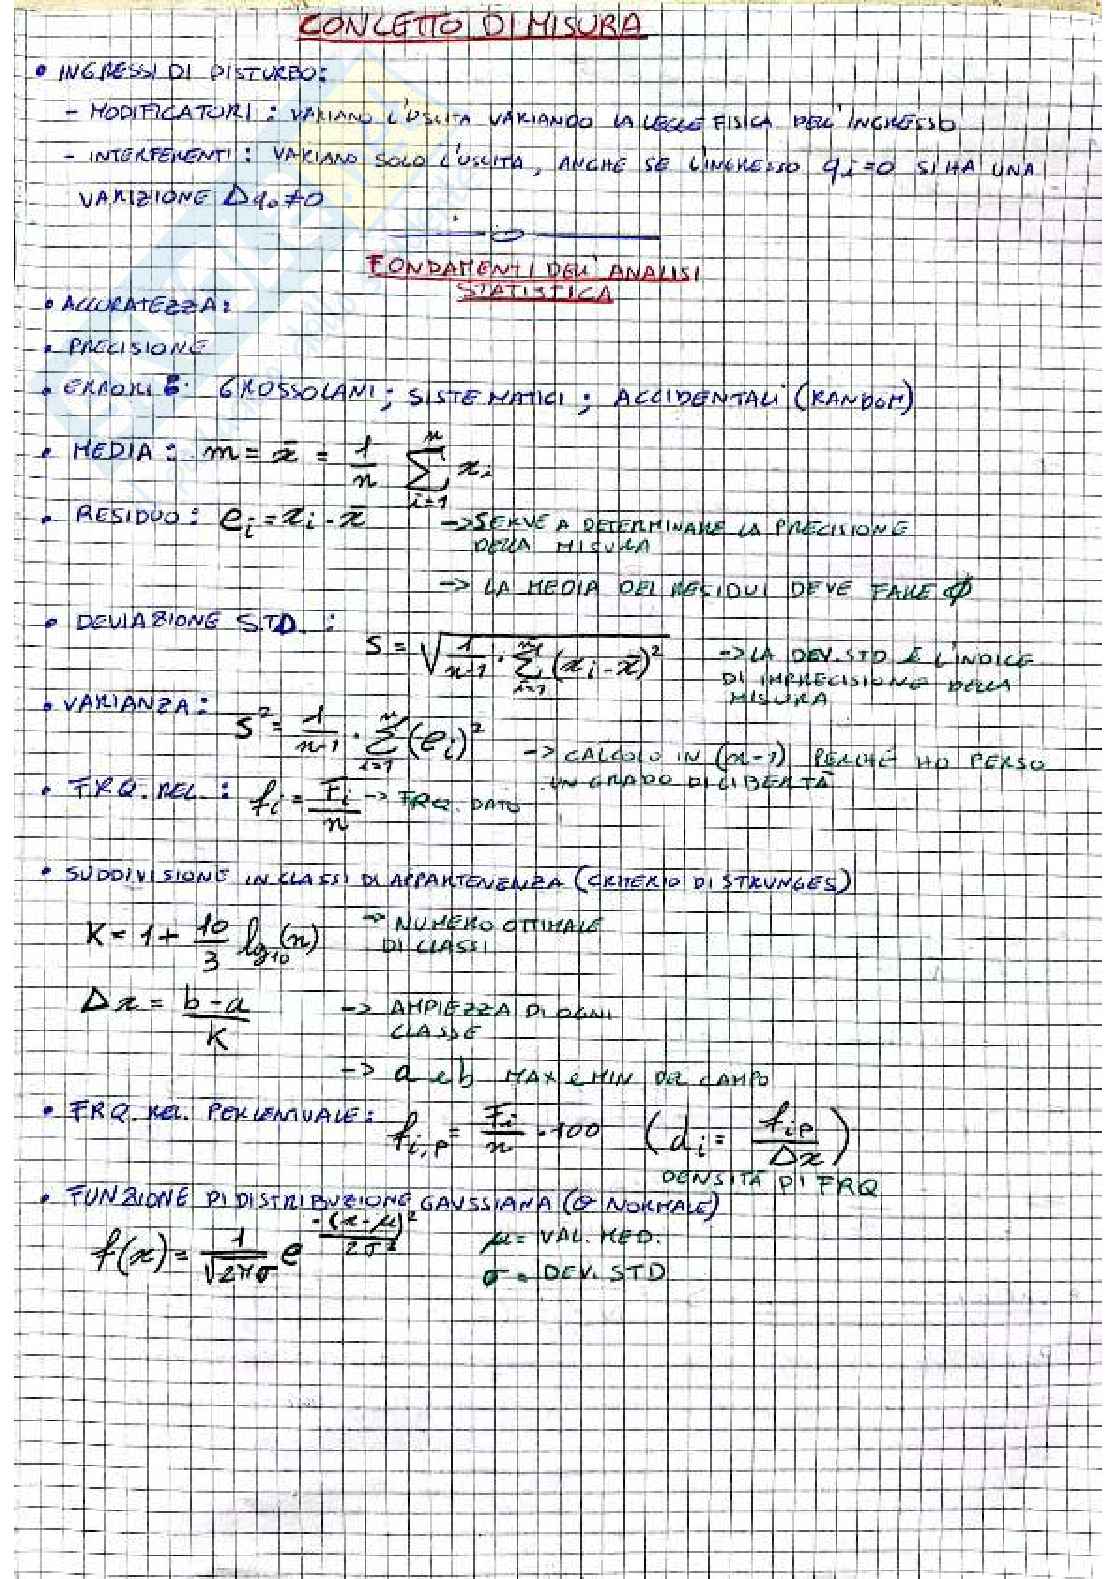 CONCETTO DI MISURA
• INGRESSI DI DISTURBO:
- MODIFICATORI: VARIANO L'USCITA VARIANDO LA LEGGE FISICA DELL'INGRESSO
- INTERFERENTI: VARIANO SOLO L'USCITA, ANCHE SE L'INGRESSO qi=0 SI HA UNA
VARIZIONE Δqo≠0
FONDAMENTI DELL'ANALISI
STATISTICA
• ACCURATEZZA:
• PRECISIONE
• ERRORI: GROSSOLANI; SISTEMATICI; ACCIDENTALI (RANDOM)
• MEDIA: m = x̄ = 1/n ∑_{i=1}^{n} xi
• RESIDUO: ei = xi - x̄ -> SERVE A DETERMINARE LA PRECISIONE
DELLA MISURA
-> LA MEDIA DEI RESIDUI DEVE FARE Ø
• DEVIAZIONE STD.: S = √(1/(n-1) · ∑_{i=1}^{n} (xi - x̄)²) -> LA DEV.STD È L'INDICE
DI IMPRECISIONE DELLA
MISURA
• VARIANZA: S² = 1/(n-1) · ∑_{i=1}^{n} (ei)² -> CALCOLO IN (n-1) PERCHÈ HO PERSO
UN GRADO DI LIBERTÀ
• FRQ. REL.: fi = Fi/n -> FRQ. DATO
• SUDDIVISIONE IN CLASSI DI APPARTENENZA (CRITERIO DI STRUNGES)
K = 1 + 10/3 log10(n) -> NUMERO OTTIMALE
DI CLASSI
Δx = (b-a)/K -> AMPIEZZA DI OGNI
CLASSE
-> a e b MAX e MIN DEL CAMPO
• FRQ. REL. PERCENTUALE: fi,p = Fi/n · 100 (di = fip/Δx)
DENSITÀ DI FRQ
• FUNZIONE DI DISTRIBUZIONE GAUSSIANA (O NORMALE)
f(x) = 1/(√2π σ) e^{-(x-μ)²/2σ²} μ = VAL. MED.
σ = DEV. STD